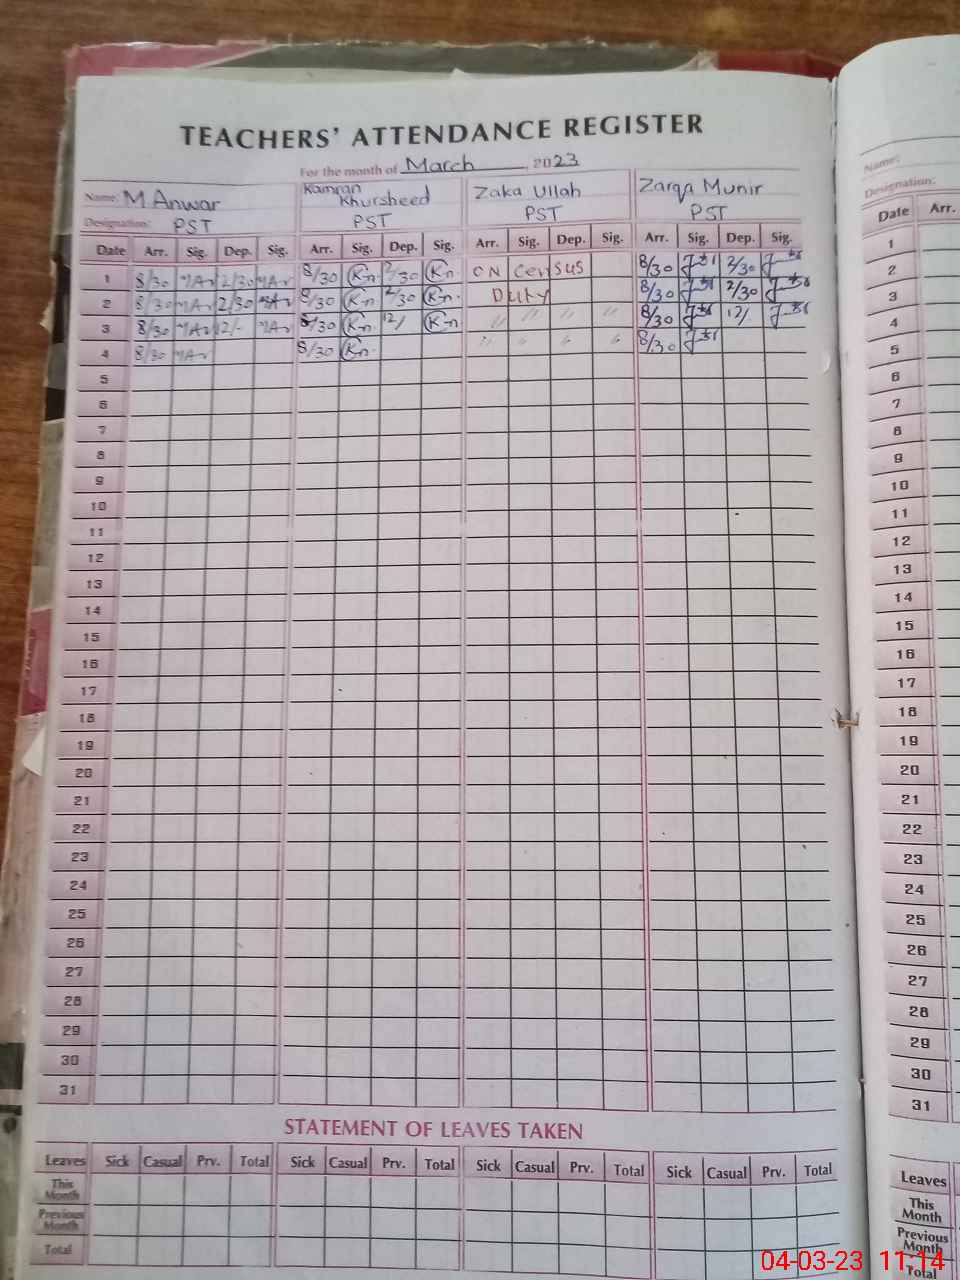 TEACHERS' ATTENDANCE REGISTER
For the month of March, 2023
Name: M Anwar Kamran Khursheed Zaka Ullah Zarqa Munir
Designation: PST PST PST PST
Date Arr. Sig. Dep. Sig. Arr. Sig. Dep. Sig. Arr. Sig. Dep. Sig. Arr. Sig. Dep. Sig.
1 8/30 MAr 2/30 MAr 8/30 Kn 2/30 Kn. ON Census 8/30 2/30
2 8/30 MAr 2/30 MAr 8/30 Kn 2/30 Kn. Duty 8/30 2/30
3 8/30 MAr 12/- MAr 8/30 Kn. 12/ Kn " " " " 8/30 12/
4 8/30 MAr 8/30 Kn. " " " " 8/30
5
6
7
8
9
10
11
12
13
14
15
16
17
18
19
20
21
22
23
24
25
26
27
28
29
30
31
STATEMENT OF LEAVES TAKEN
Leaves Sick Casual Prv. Total Sick Casual Prv. Total Sick Casual Prv. Total Sick Casual Prv. Total
This Month
Previous Month
Total
Name:
Designation:
Date Arr.
1
2
3
4
5
6
7
8
9
10
11
12
13
14
15
16
17
18
19
20
21
22
23
24
25
26
27
28
29
30
31
Leaves
This Month
Previous Month
Total
04-03-23 11:14